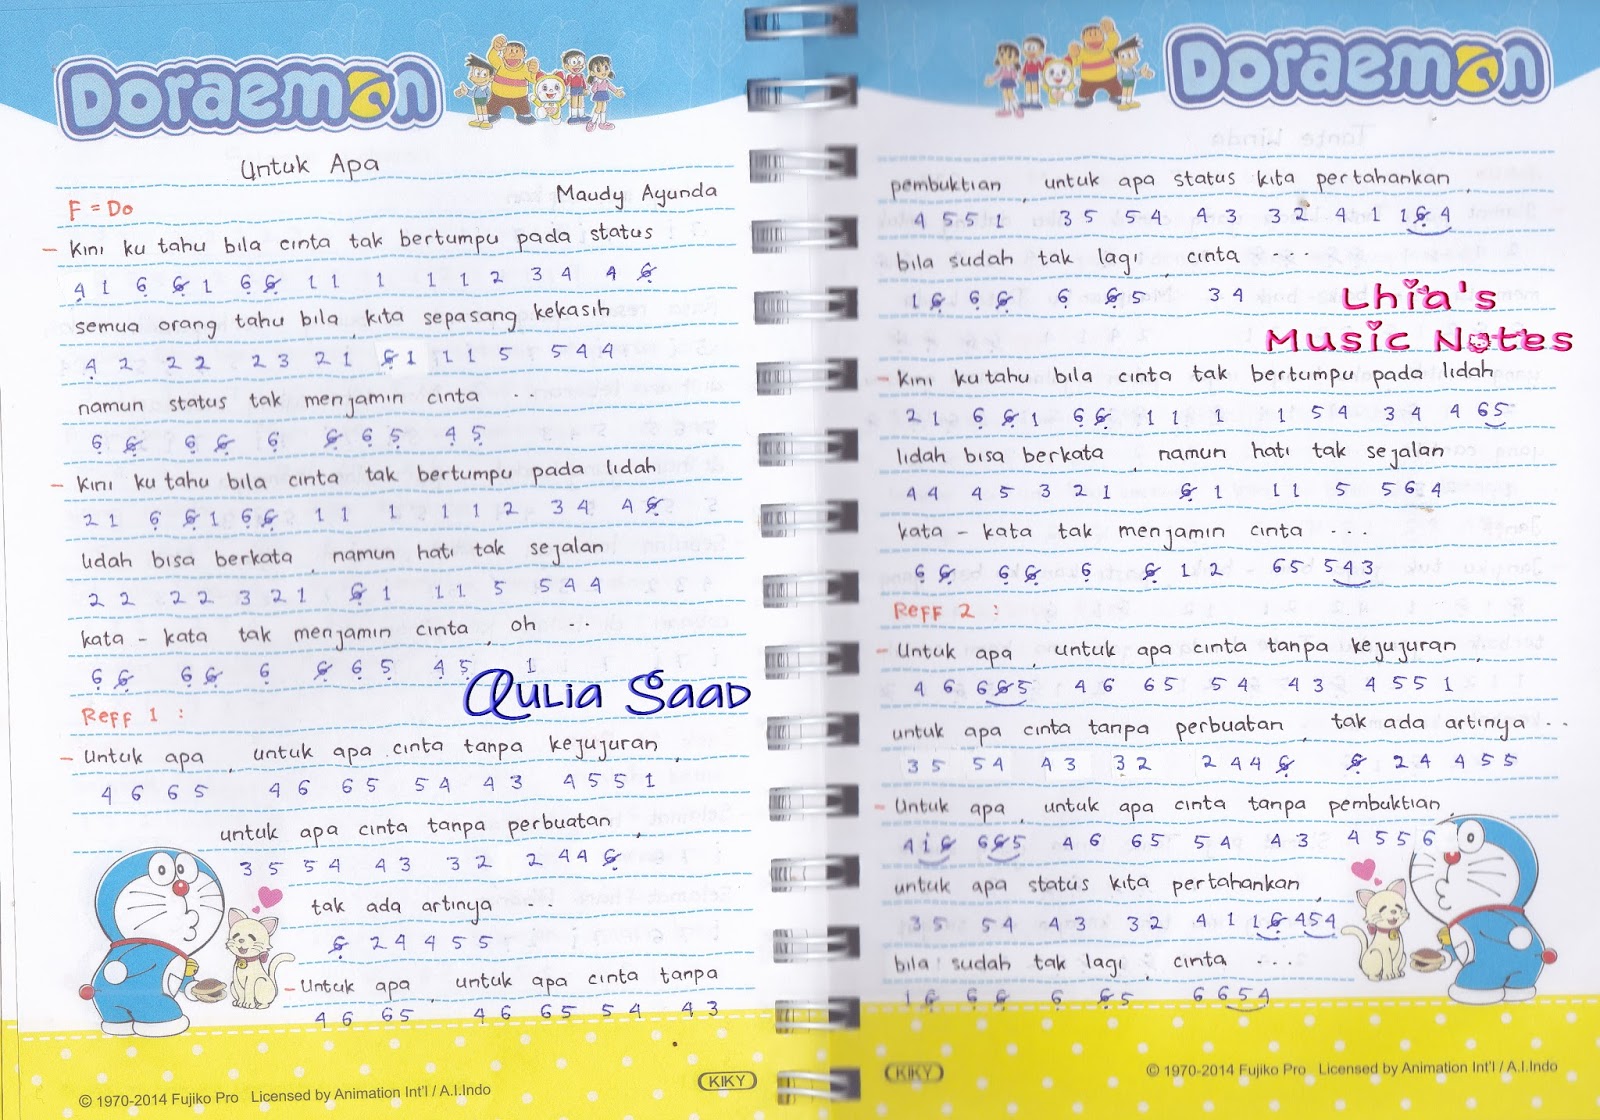 DORaEmON
Untuk Apa
Maudy Ayunda
F = Do
- Kini ku tahu bila cinta tak bertumpu pada status
4 1 6 6 1 6 6 1 1 1 1 1 2 3 4 4 6
semua orang tahu bila, kita sepasang kekasih
4 2 2 2 2 3 2 1 6 1 1 1 5 5 4 4
namun status tak menjamin cinta . .
6 6 6 6 6 6 6 5 4 5
- Kini ku tahu bila cinta tak bertumpu pada lidah
2 1 6 6 1 6 6 1 1 1 1 1 2 3 4 4 6
lidah bisa berkata, namun hati tak sejalan
2 2 2 2 3 2 1 6 1 1 1 5 5 4 4
kata - kata tak menjamin cinta, oh . . .
6 6 6 6 6 6 6 5 4 5 1
Aulia Saad
Reff 1 :
- Untuk apa, untuk apa cinta tanpa kejujuran,
4 6 6 5 4 6 6 5 5 4 4 3 4 5 5 1
untuk apa cinta tanpa perbuatan,
3 5 5 4 4 3 3 2 2 4 4 6
tak ada artinya . .
6 2 4 4 5 5
- Untuk apa, untuk apa cinta tanpa
4 6 6 5 4 6 6 5 5 4 4 3
© 1970-2014 Fujiko Pro Licensed by Animation Int'l / A.I.Indo
KIKY
DORaEmON
pembuktian, untuk apa status kita pertahankan,
4 5 5 1 3 5 5 4 4 3 3 2 4 1 1 6 4
bila sudah tak lagi, cinta . . .
1 6 6 6 6 6 5 3 4
Lhia's
Music Notes
- Kini ku tahu bila cinta tak bertumpu pada lidah
2 1 6 6 1 6 6 1 1 1 1 5 4 3 4 4 6 5
lidah bisa berkata, namun hati tak sejalan
4 4 4 5 3 2 1 6 1 1 1 5 5 6 4
kata - kata tak menjamin cinta . . .
6 6 6 6 6 6 1 2 6 5 5 4 3
Reff 2 :
- Untuk apa, untuk apa cinta tanpa kejujuran,
4 6 6 6 5 4 6 6 5 5 4 4 3 4 5 5 1
untuk apa cinta tanpa perbuatan, tak ada artinya . .
3 5 5 4 4 3 3 2 2 4 4 6 6 2 4 4 5 5
- Untuk apa, untuk apa cinta tanpa pembuktian,
4 i 6 6 6 5 4 6 6 5 5 4 4 3 4 5 5 6
untuk apa status kita pertahankan,
3 5 5 4 4 3 3 2 4 1 1 6 4 5 4
bila sudah tak lagi, cinta . . .
1 6 6 6 6 6 5 6 6 5 4
KIKY
© 1970-2014 Fujiko Pro Licensed by Animation Int'l / A.I.Indo